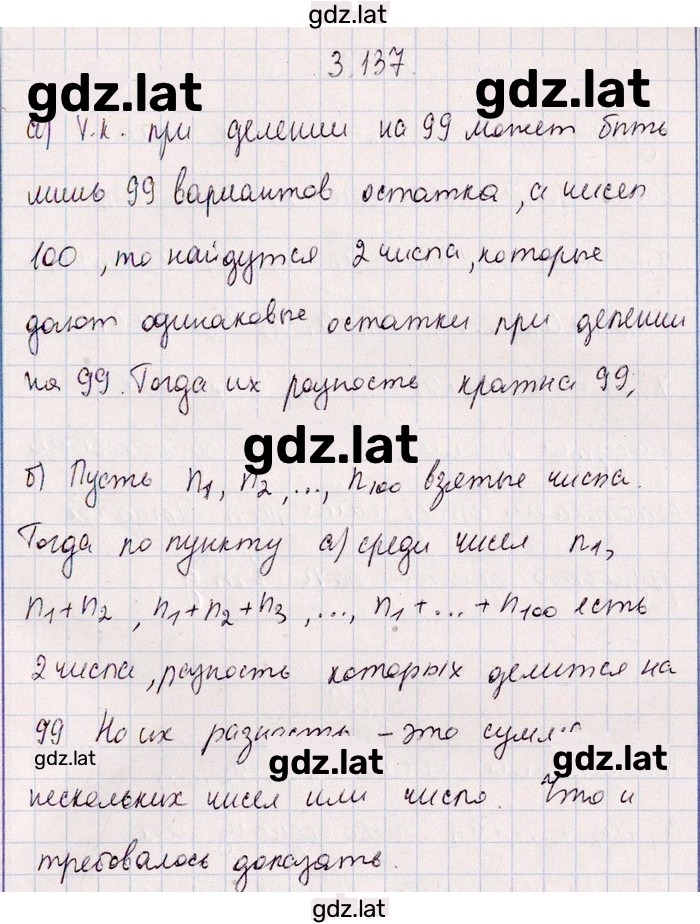 gdz.lat
3.137.
gdz.lat gdz.lat
а) Т.к. при делении на 99 может быть
лишь 99 вариантов остатка, а чисел
100, то найдутся 2 числа, которые
дают одинаковые остатки при делении
на 99. Тогда их разность кратна 99,
gdz.lat
б) Пусть n₁, n₂, ..., n₁₀₀ взятые числа.
Тогда по пункту а) среди чисел n₁,
n₁+n₂, n₁+n₂+n₃, ..., n₁+...+n₁₀₀ есть
2 числа, разность которых делится на
99 Но их разность - это сумма
gdz.lat gdz.lat gdz.lat
нескольких чисел или число. Что и
требовалось доказать.
gdz.lat